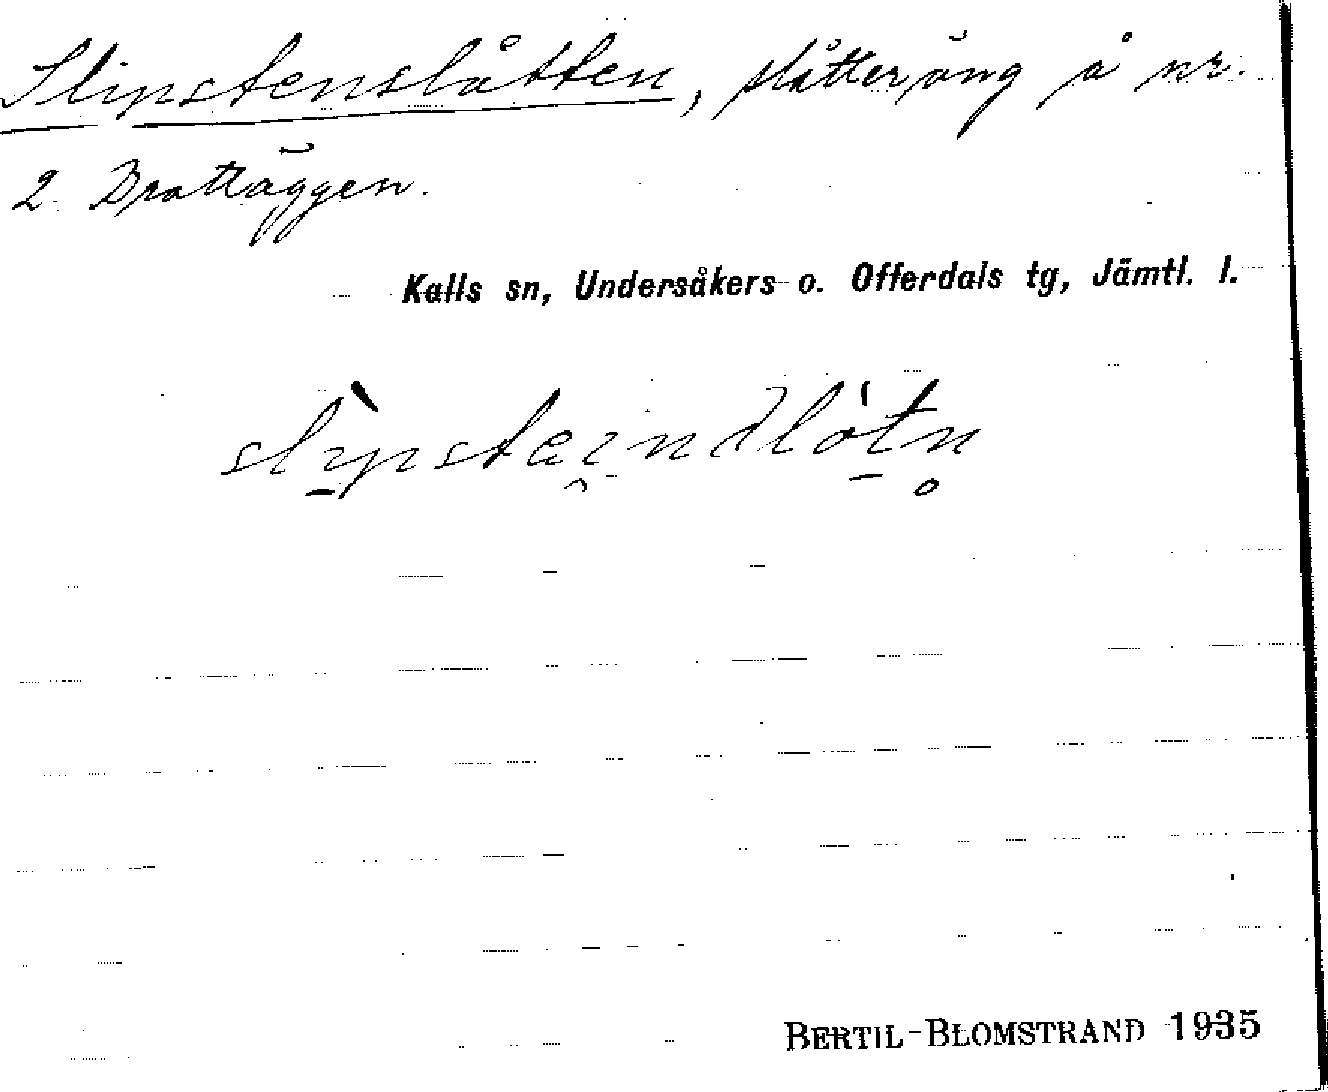 Slipstenslåtten, slåtteräng å nr.
2 Brattäggen.
Kalls sn, Undersåkers o. Offerdals tg, Jämtl. l.
BERTIL BLOMSTRAND 1935